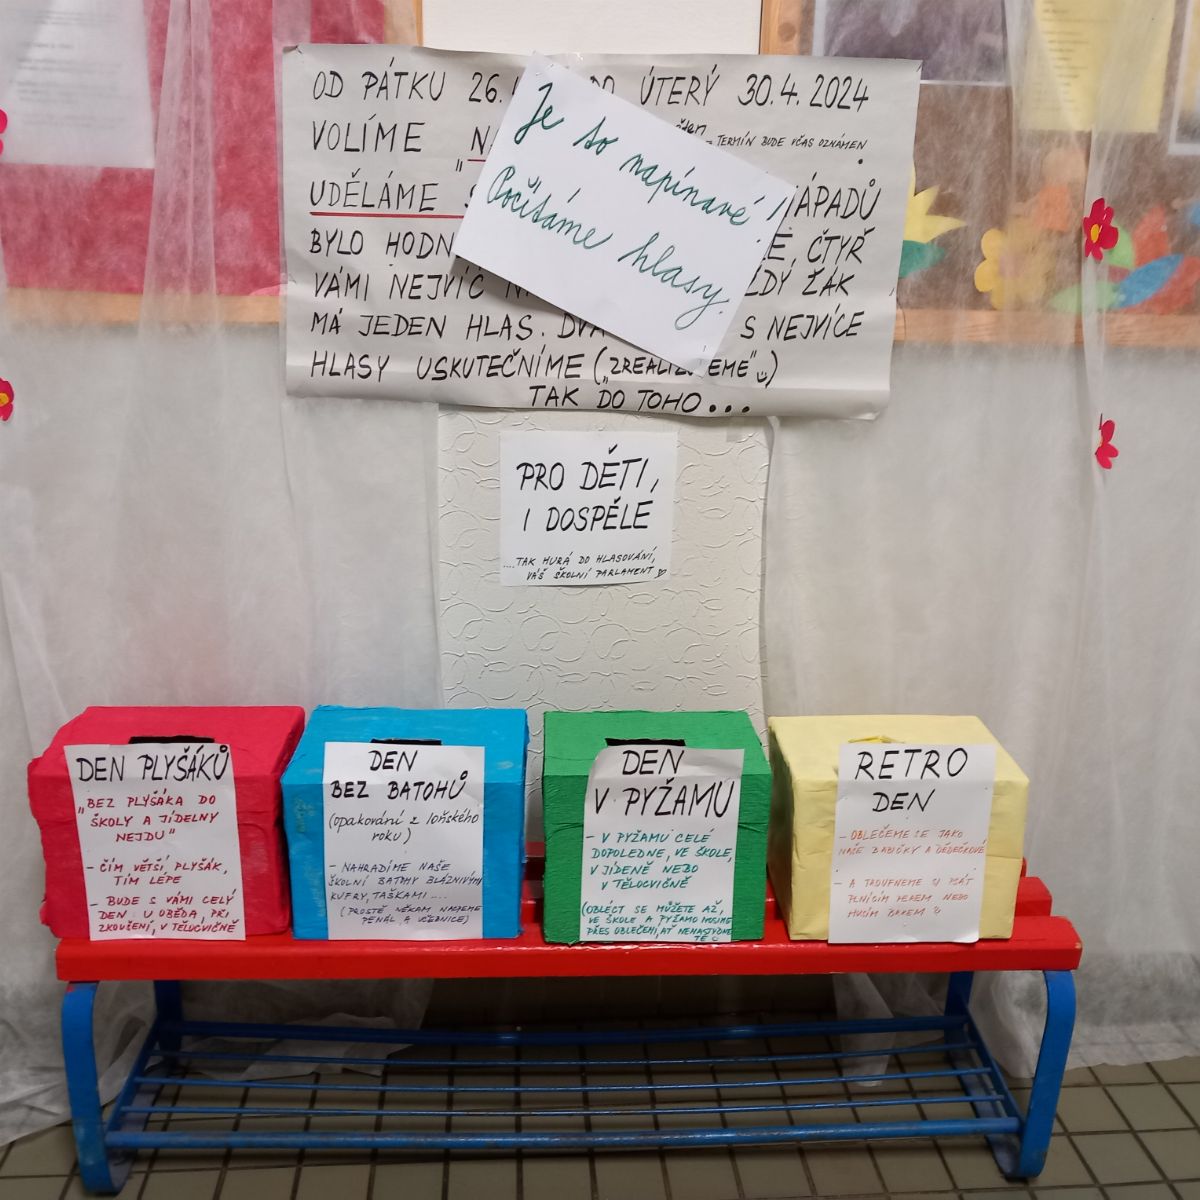 OD PÁTKU 26. DO ÚTERÝ 30.4. 2024
VOLÍME
TERMÍN BUDE VČAS OZNÁMEN.
UDĚLÁME
BYLO HODN , ČTYŘ
VÁMI NEJVÍC ŽÁK
MÁ JEDEN HLAS. S NEJVÍCE
HLASY USKUTEČNÍME
TAK DO TOHO...
Je to napínavé!
Počítáme hlasy.
PRO DĚTI,
I DOSPĚLE
....TAK HURÁ DO HLASOVÁNÍ,
VÁŠ ŠKOLNÍ PARLAMENT
DEN PLYŠÁKŮ
"BEZ PLYŠÁKA DO
ŠKOLY A JÍDELNY
NEJDU"
- ČÍM VĚTŠÍ PLYŠÁK,
TÍM LÉPE
- BUDE S VÁMI CELÝ
DEN U OBĚDA, PŘI
ZKOUŠENÍ, V TĚLOCVIČNĚ
DEN
BEZ BATOHŮ
(opakování z loňského
roku)
- NAHRADÍME NAŠE
ŠKOLNÍ BATOHY BLÁZNIVÝMI
KUFRY, TAŠKAMI ....
(PROSTĚ NĚKAM NANDEME
PENÁL A UČEBNICE)
DEN
V PYŽAMU
- V PYŽAMU CELÉ
DOPOLEDNE, VE ŠKOLE,
V JÍDENĚ NEBO
V TĚLOCVIČNĚ
(OBLÉCT SE MŮŽETE AŽ,
VE ŠKOLE A PYŽAMO NOSIME
PŘES OBLEČENÍ, AŤ NENASTYDNE
TE
RETRO
DEN
- OBLEČEME SE JAKO
NAŠE BABIČKY A DĚDEČKOVÉ
- A TROUFNEME SI PSÁT
PLNÍCÍM PEREM NEBO
HUSÍM BRKEM